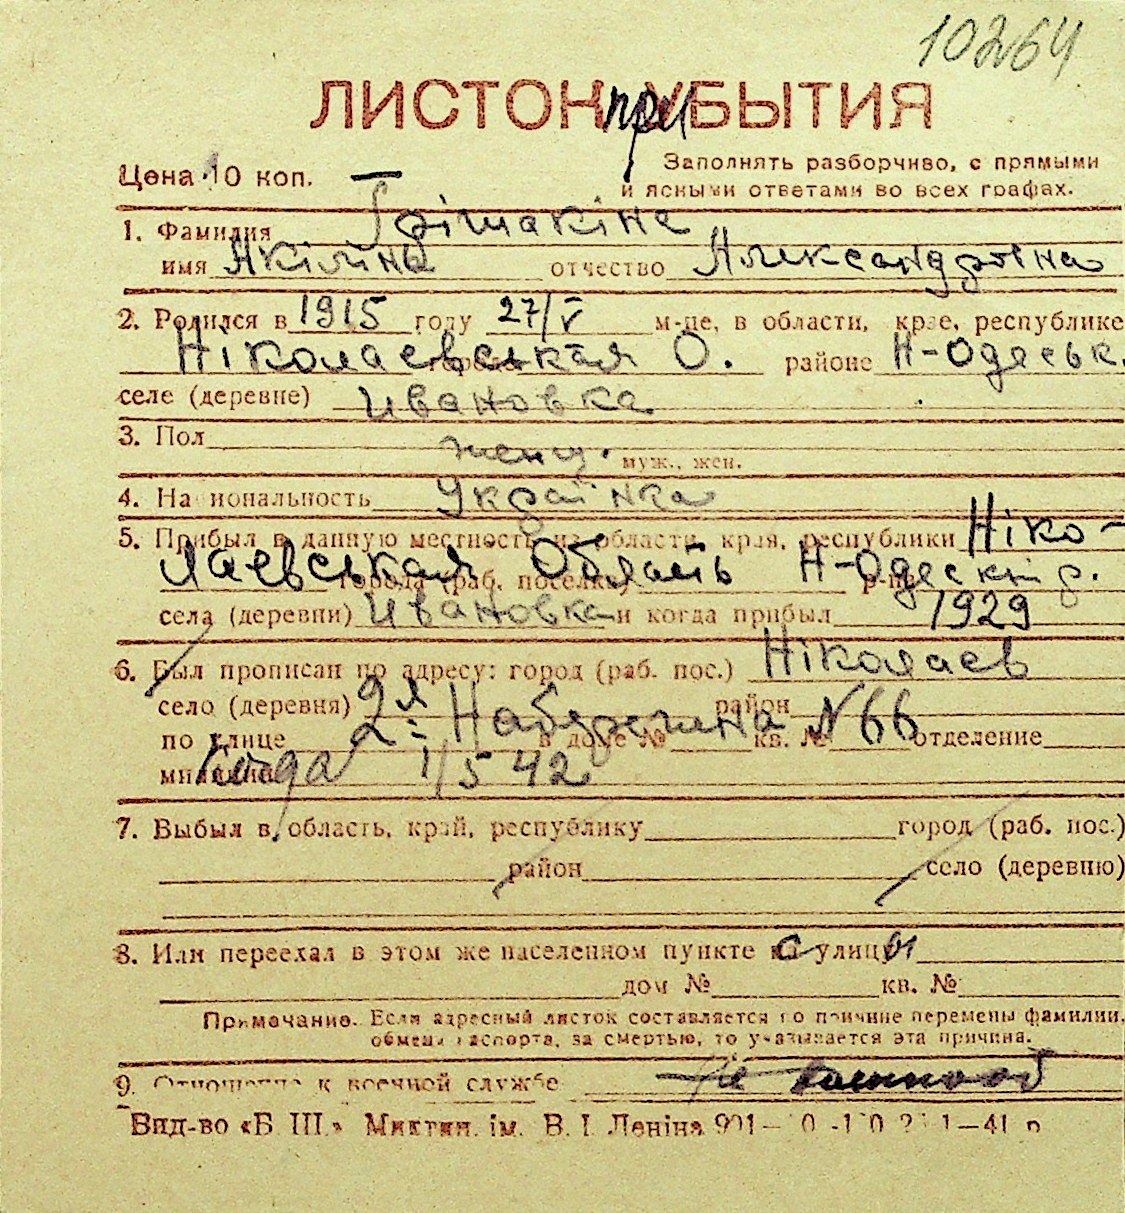 10264
ЛИСТОК ПРИБЫТИЯ
Цена 10 коп.
Заполнять разборчиво, с прямыми
и ясными ответами во всех графах.
1. Фамилия Грішакіне
имя Акіліна отчество Александровна
2. Родился в 1915 году 27/V м-це, в области, крае, республике
Ніколаевськая О. районе Н-Одеськ.
селе (деревне) Ивановка
3. Пол женщ.
муж., жен.
4. Национальность Українка
5. Прибыл в данную местность из области, края, республики Ніко-
лаевськая Область города (раб. поселка) Н-Одеск р.
села (деревни) Ивановка и когда прибыл 1929
6. Был прописан по адресу: город (раб. пос.) Ніколаев
село (деревня) район
2я Набережна №66
по улице в доме № кв. № отделение
милиции Когда 1/5 42
7. Выбыл в область, край, республику город (раб. пос.)
район село (деревню)
8. Или переехал в этом же населенном пункте с улицы
дом № кв. №
Примечание. Если адресный листок составляется по причине перемены фамилии,
обмена паспорта, за смертью, то указывается эта причина.
9. Отношение к военной службе Не
Вид-во «Б. Ш.» Миктип. ім. В. І. Леніна